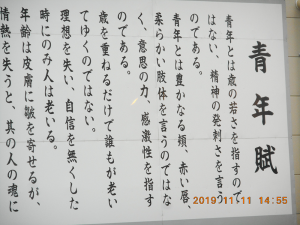 青年賦
青年とは歳の若さを指すので
はない、精神の発剌さを言う
のである。
青年とは豊かなる頬、赤い唇、
柔らかい肢体を言うのではな
く、意思の力、感激性を指す
のである。
歳を重ねるだけで誰もが老い
てゆくのではない。
理想を失い、自信を無くした
時にのみ人は老いる。
年齢は皮膚に皺を寄せるが、
情熱を失うと、其の人の魂に
2019/11/11 14:55